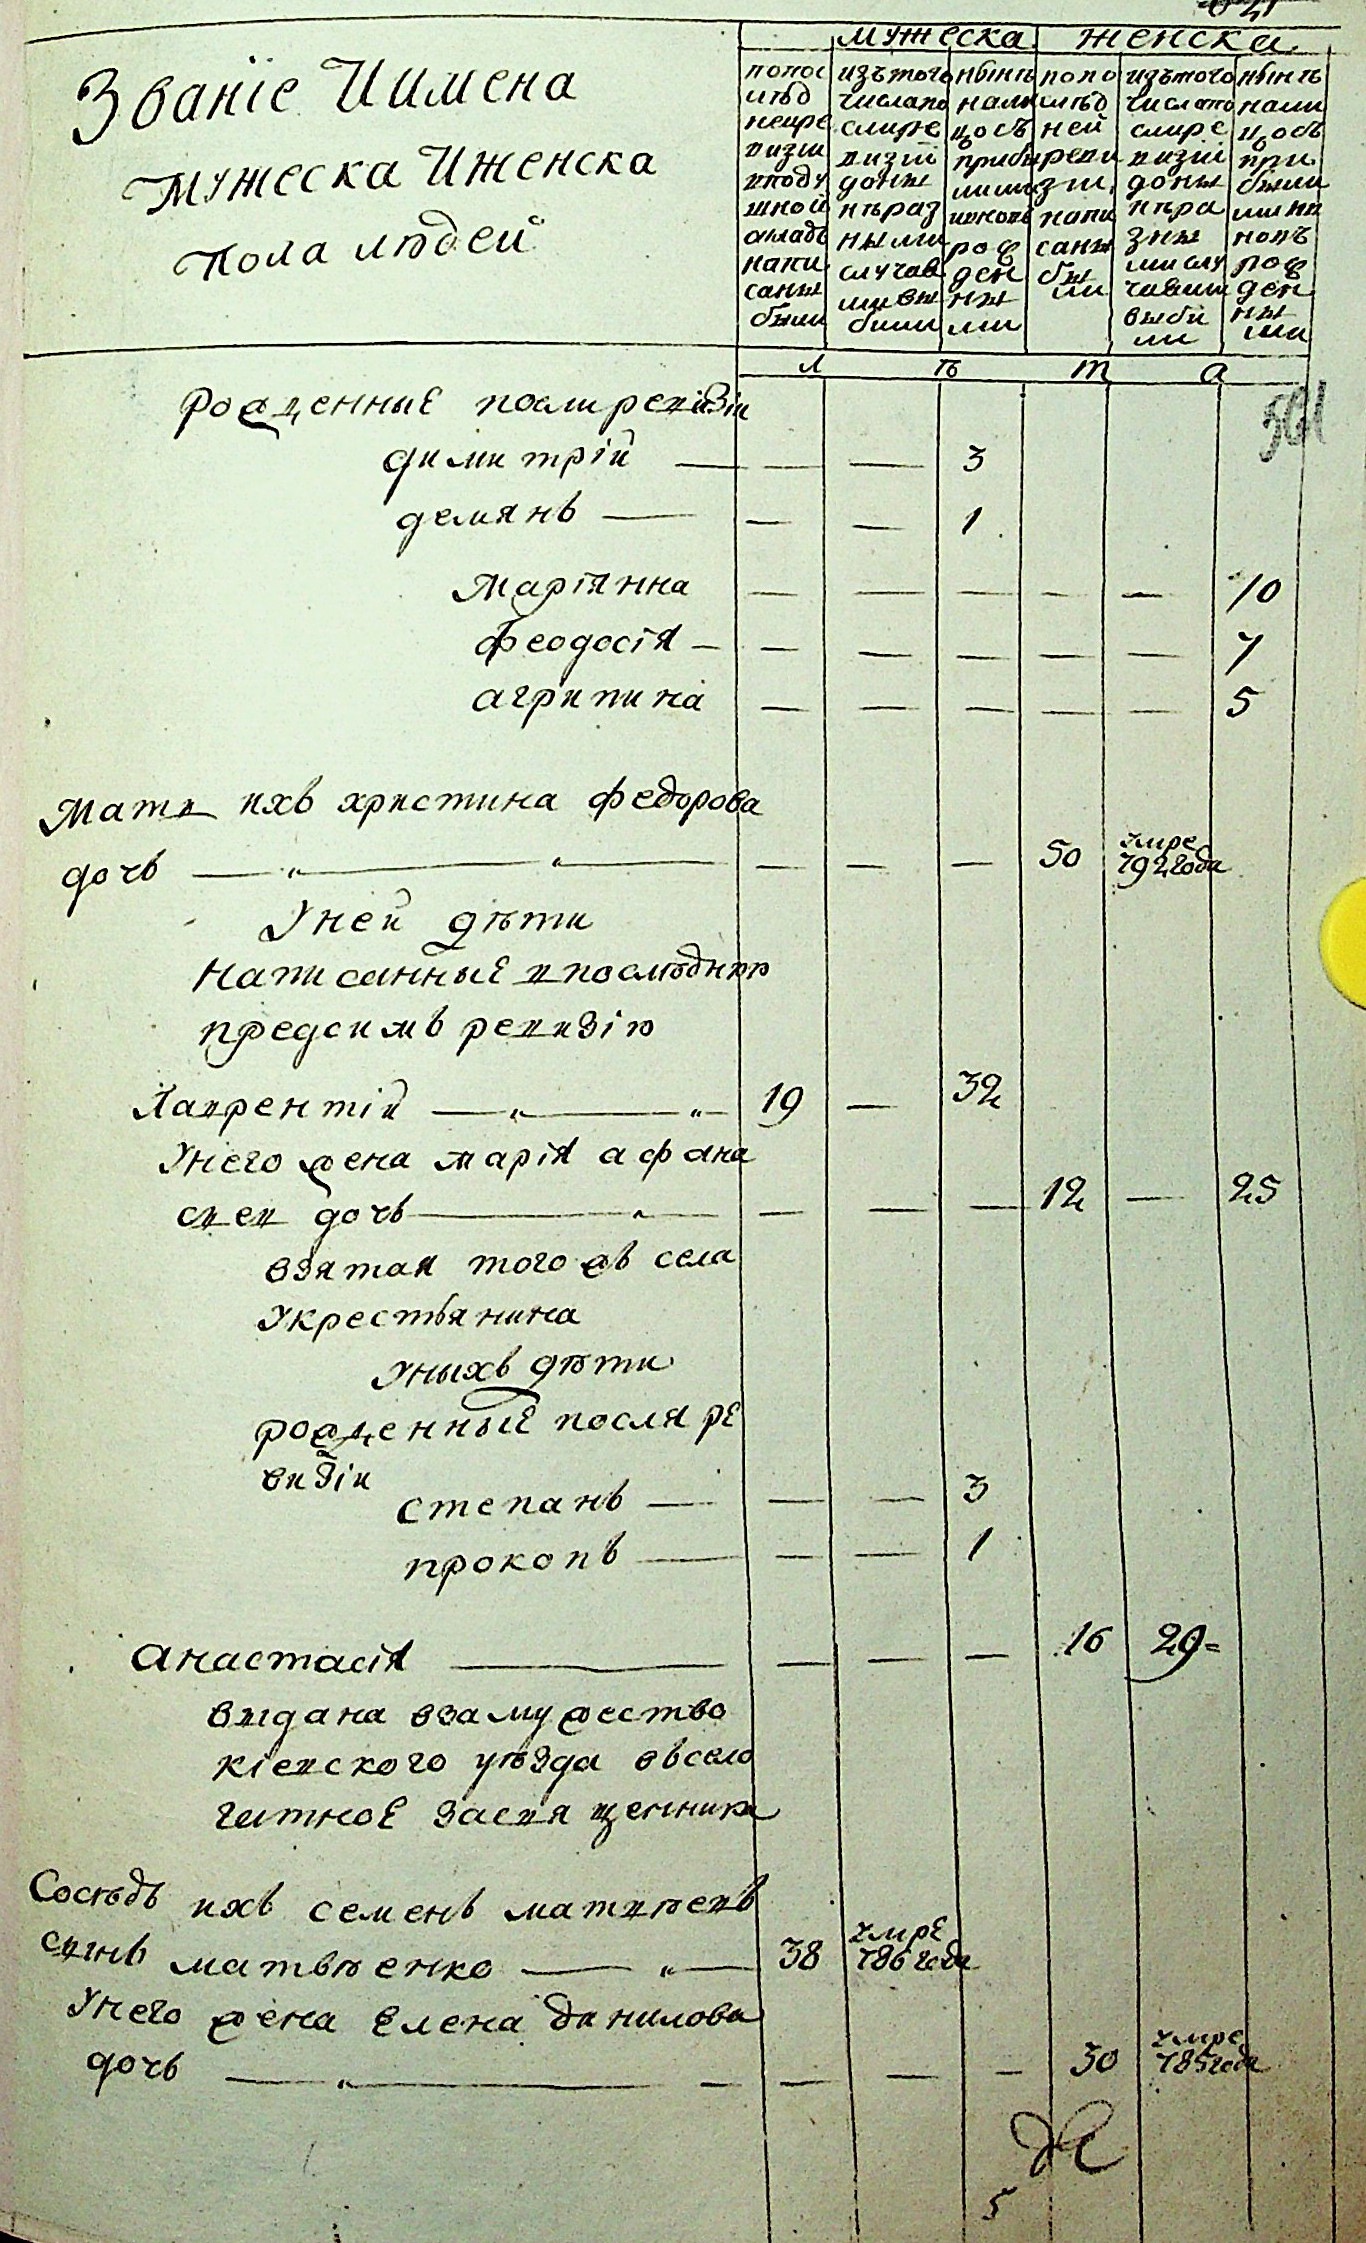 мужеска женска
Званїе Иимена
мужеска Иженска
пола людей
попос
лѣд
ней ре
визїи
вподу
шной
окладъ
напи
саны
были
изътого
числапо
слѣре
визїи
донын
нѣраз
ными
случая
ми вы
были
нынѣ
нали
цосъ
прибы
лыми
ивновь
рож
ден
ны
ми
попо
слѣд
ней
реви
зїи
напи
саны
бы
ли
изътого
числапо
слѣре
визїи
донын
нѣра
зны
ми слу
чаями
выбы
ли
нынѣ
нали
цосъ
при
были
ми ив
новь
рож
ден
ны
ми
л ѣ т а
Рожденные послиревизіи
димитрій — — — 3
демянъ — — — 1
Маріянна — — — — — 10
феодосія — — — — — — 7
агрипина — — — — — 5
Мати ихъ христина федорова
дочь — " — " — — — — 50 умре 792 года
Уней дѣти
написанные впослѣднюю
предсимъ ревизію
Лаврентій — " — " — 19 — 32
Унего жена марія афана
сиев дочь — " — — — — 12 — 25
взятая того жъ села
Укрестьянина
Уныхъ дѣти
рожденные посля ре
визіи
степанъ — — — 3
прокопъ — — — 1
анастасія — — — — 16 29
выдана взамужество
кіевского уѣзда всело
гатное засвященника
Сосѣдъ ихъ семенъ матвѣевъ
сынъ матвѣенко — " — 38 умре 786 года
Унего жена елена данилова
дочь — " — — — — — 30 умре 785 года
5